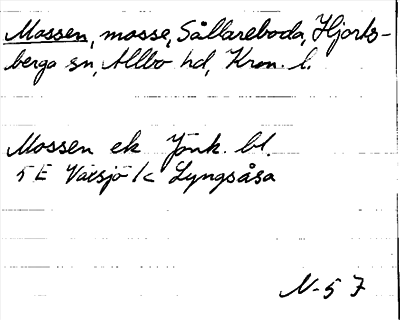 Mossen, mosse, Sållareboda, Hjorts-
berga sn, Allbo hd, Kron. l.
Mossen ek Jönk. bl.
5 E Växsjö k Lyngsåsa
N-57